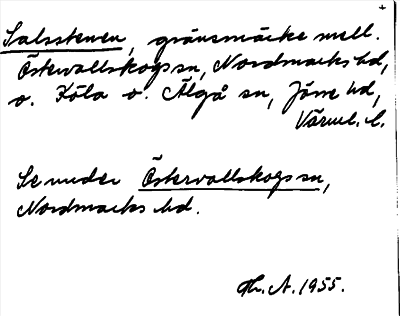 +
Salsstenen, gränsmärke mell.
Östervallskogs sn, Nordmarks hd,
o. Köla o. Älgå sn, Jösse hd,
Värml. l.
Se under Östervallskogs sn,
Nordmarks hd.
A. 1955.